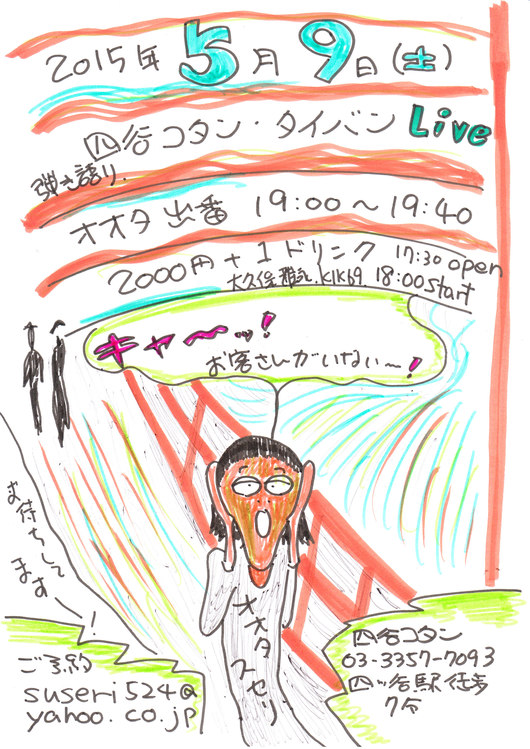 2015年5月9日(土)
四谷コタン・タイバン Live
弾き語り.
オオタ出番 19:00～19:40
2000円+1ドリンク 17:30 open
大久保雅永 KlK69 18:00 start
キャ～ッ!
お客さんがいない～!
お待ちして
ます～!
オオタスセリ
ご予約
suseri524@
yahoo.co.jp
四谷コタン
03-3357-7093
四ッ谷駅徒歩
7分